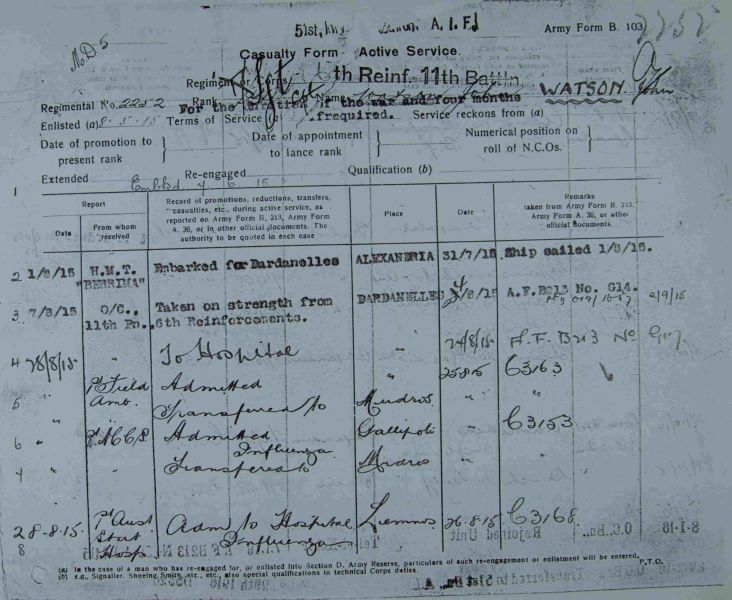 M.D 5
51st, A. I. F.
Army Form B. 103
Casualty Form - Active Service.
Regiment or Corps th Reinf. 11th Battln
Regimental No. 2252 Rank Name WATSON. John
For the duration of the war and four months
Enlisted (a) 8.5.15 Terms of Service (a) frequired. Service reckons from (a)
Date of promotion to present rank
Date of appointment to lance rank
Numerical position on roll of N.C.Os.
Extended Re-engaged Qualification (b)
Embkd 15
1
Report
Date
From whom received
Record of promotions, reductions, transfers, casualties, etc., during active service, as reported on Army Form B. 213, Army Form A. 36, or in other official documents. The authority to be quoted in each case
Place
Date
Remarks taken from Army Form B. 213, Army Form A. 36, or other official documents.
2 1/8/15 H.M.T. "BERRIMA" Embarked for Dardanelles ALEXANDRIA 31/7/15 Ship sailed 1/8/15.
3 7/8/15 O/C., 11th Bn. Taken on strength from 6th Reinforcements. DARDANELLES 4/8/15 A.F.B213 No. G14.
2/9/15
4 28/8/15 To Hospital " 24/8/15 A.F. B213 No
1st Field Amb. Admitted " 25.8.15 C3163
5 " Transferred to Mudros " "
6 " Admitted Influenza Gallipoli " C3153
7 " Transferred to Mudros "
28-8-15 1st Aust Stat Hosp. Adm to Hospital Influenza Lemnos 26-8-15 C3168
8
(a) In the case of a man who has re-engaged for, or enlisted into Section D. Army Reserve, particulars of such re-engagement or enlistment will be entered.
(b) e.g., Signaller, Shoeing Smith, etc., etc., also special qualifications in technical Corps duties.
P.T.O.